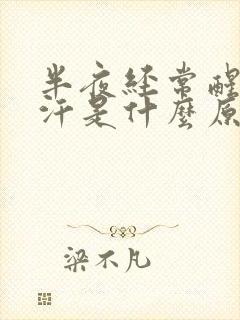 半夜经常醒
汗是什麽原
梁不凡